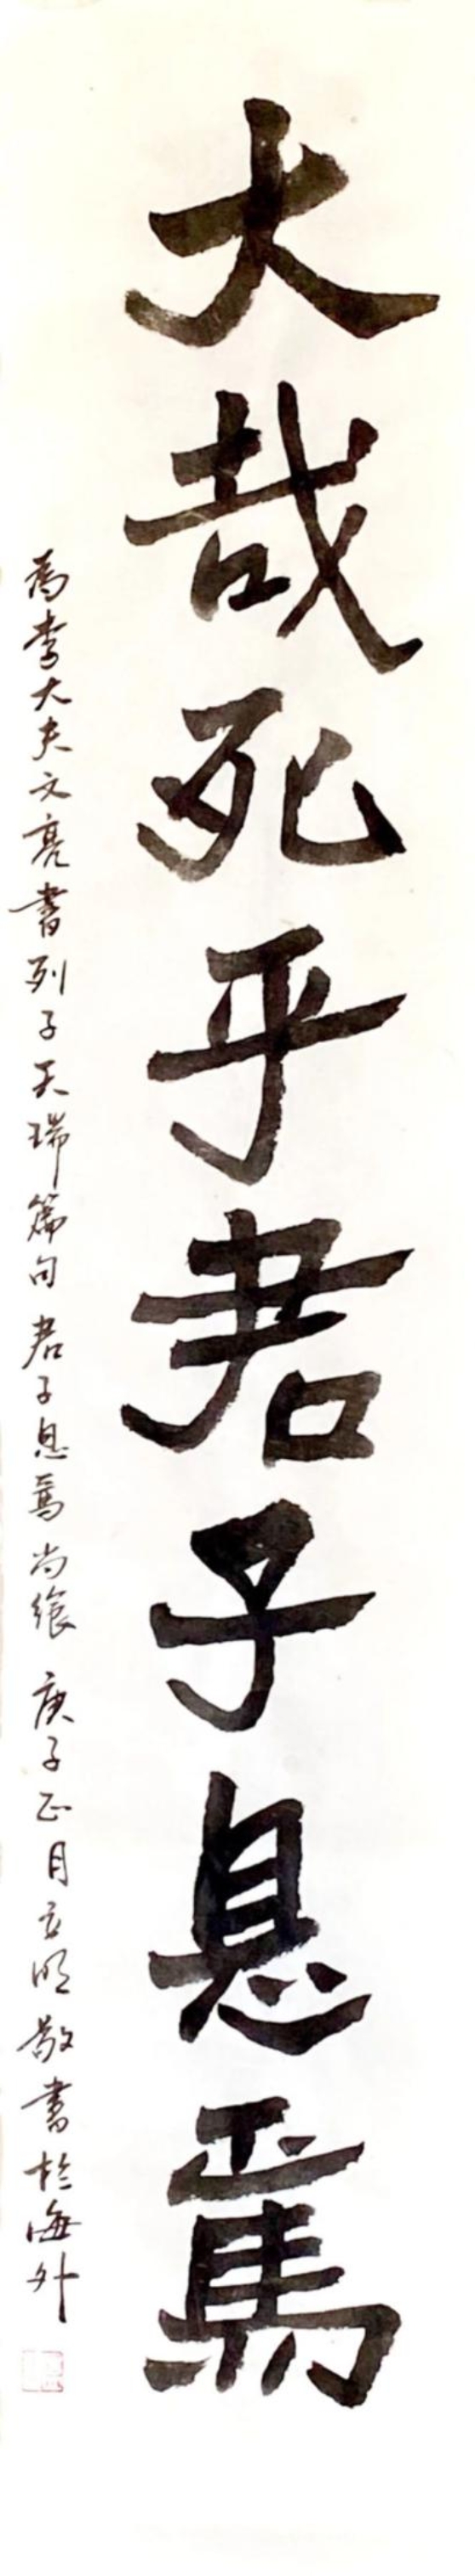 大哉死乎君子息焉
為李大夫文亮書列子天瑞篇句君子息焉尚飨庚子正月立明敬書於海外